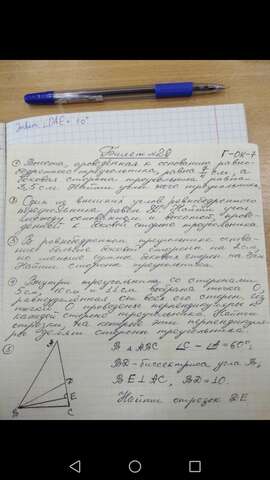 ∠DAE = 10°
Билет №20
Г-ОК-7
① Высота, проведённая к основанию равно-
бедренного треугольника, равна см, а
боковая сторона треугольника равна
3,5 см. Найти углы этого треугольника.
② Один из внешних углов равнобедренного
треугольника равен Найти угол
между основанием и высотой, прове-
дённой к боковой стороне треугольника.
③ В равнобедренном треугольнике осно-
вание больше боковой стороны на 2 см,
но меньше суммы боковых сторон на
Найти стороны треугольника.
④ Внутри треугольника со сторонами
5 см, 10 см и 11 см выбрана точка O,
равноудалённая от всех его сторон. Из
точки O проведены перпендикуляры к
каждой стороне треугольника. Найти
отрезки, на которые эти перпендикуля-
ры делят стороны треугольника.
⑤
A
D
E
B
C
В △ABC ∠C - ∠A = 60°,
BD - биссектриса угла B,
BE⊥AC, BD = 10.
Найти отрезок DE.